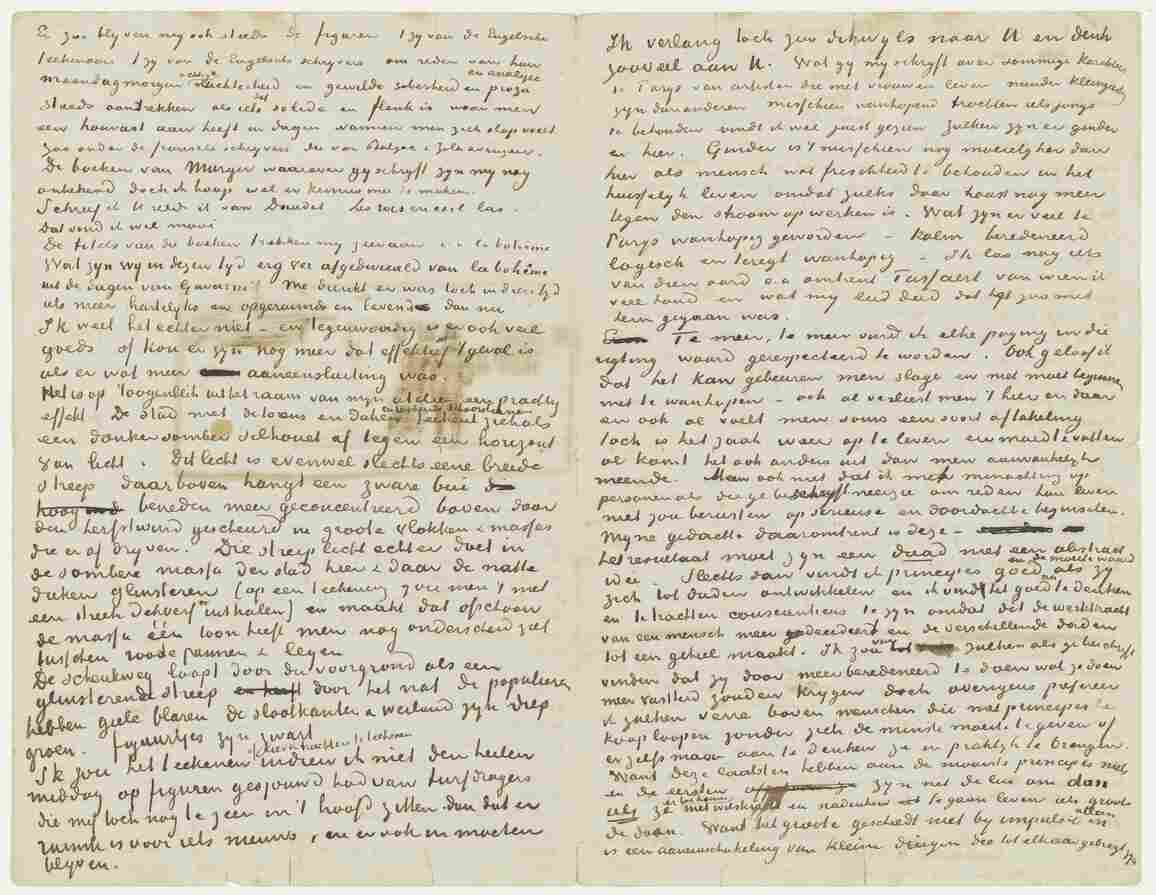 En zoo blyven my ook steeds de figuren t zy van de Engelsche
teekenaars t zy van de Engelsche schryvers om reden van hun
maandagmorgen achtige nuchterheid en gewilde soberheid en proza en analyse
steeds aantrekken als iets dat solide en flink is waar men
een houvast aan heeft in dagen wanneer men zich slap voelt
zoo onder de fransche schryvers die van Balzac & Zola evenzeer.
De boeken van Murger waarover gy schryft zyn my nog
onbekend doch ik hoop wel er kennis mee te maken.
Schreef ik U reeds ik van Daudet Les rois en exil las.
Dat vond ik wel mooi
De titels van die boeken trekken my zeer aan o.a. la bohême
Wat zyn wy in dezen tyd erg ver afgedwaald van la bohême
uit de dagen van Gavarni! Me dunkt er was toch in dien tyd
iets meer hartelyks en opgeruimds en levends dan nu
Ik weet het echter niet – en tegenwoordig is er ook veel
goeds of kon er zyn nog meer dat effektief 't geval is
als er wat meer aaneensluiting was.
Het is op 't oogenblik uit het raam van myn atelier een prachtig
effekt. De stad met de torens en daken en rookende schoorsteenen teekent zich als
een donker somber silhouet af tegen een horizont
van licht. Dit licht is evenwel slechts eene breede
streep daarboven hangt een zware bui
beneden meer geconcentreerd boven door
den herfstwind gescheurd in groote vlokken & massas
die er af dryven. Die streep licht echter doet in
de sombere massa der stad hier & daar de natte
daken glinsteren (op een teekening zou men 't met
een streek dekverf uithalen) en maakt dat ofschoon
de massa één toon heeft men nog onderscheid ziet
tusschen roode pannen & leyen
De schenkweg loopt door den voorgrond als een
glinsterende streep door het nat de populieren
hebben geele blaren de slootkanten & weiland zyn diep
groen. figuurtjes zyn zwart
Ik zou het teekenen indien ik niet den heelen
middag op figuren gesjouwd had van turfdragers
die my toch nog te zeer in 't hoofd zitten dan dat er
ruimte is voor iets nieuws, en er ook in moeten
blyven.
Ik verlang toch zoo dikwyls naar U en denk
zooveel aan U. Wat gy my schryft over sommige karakters
te Parys van artisten die met vrouwen leven minder kleingeestig
zyn dan anderen misschien wanhopend trachten iets jongs
te behouden vindt ik wel juist gezien. Zulken zyn er ginder
en hier. Ginder is 't misschien nog moeielyker dan
hier als mensch wat frischheid te behouden in het
huisselyk leven omdat zulks daar haast nog meer
tegen den stroom opwerken is. Wat zyn er veel te
Parys wanhopig geworden – kalm beredeneerd
logisch en teregt wanhopig – Ik las nog iets
van dien aard o.a. omtrent Tassaert van wien ik
veel houd en wat my leed deed dat 't zoo met
hem gegaan was.
Te meer, te meer vind ik elke poging in die
rigting waard gerespecteerd te worden. Ook geloof ik
dat het kan gebeuren men slage en niet moet beginnen
met te wanhopen – ook al verliest men 't hier en daar
en ook al voelt men soms een soort aftakeling
toch is het zaak weer op te leven en moed te vatten
al komt het ook anders uit dan men aanvankelyk
meende. Maar ook niet dat ik met minachting op
personen als die ge beschryft neerzie om reden hun leven
niet zou berusten op serieuse en doordachte beginselen.
Myne gedachte daaromtrent is deze –
het resultaat moet zyn een daad niet een abstract
idee. Slechts dan vindt ik principes goed en de moeite waard als zy
zich tot daden ontwikkelen en ik vind het goed te denken
en te trachten consciencieus te zyn omdat dit de werkkracht
van een mensch meer gedecideerd en de verschillende daden
tot een geheel maakt. Ik zou van zulken als ge beschryft
vinden dat zy door meer beredeneerd te doen wat ze doen
meer vastheid zouden krygen doch overigens prefereer
ik zulken verre boven menschen die met principes te
koop loopen zonder zich de minste moeite te geven of
er zelfs maar aan te denken ze in praktyk te brengen.
Want deze laatsten hebben aan de mooiste principes niets
en de eersten zyn net de lui om dan
als ze er toe komen met wilskracht en nadenken te gaan leven iets groots
te doen. Want het groote geschiedt niet by impulsie alleen en
is een aaneenschakeling van kleine dingen die tot elkaar gebragt zyn